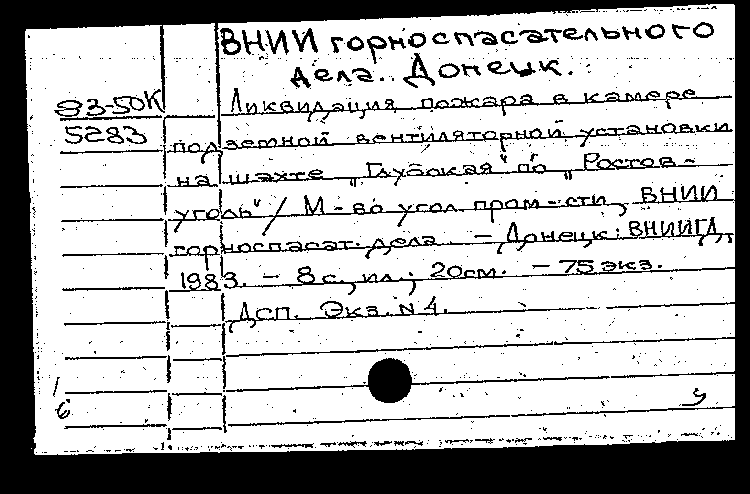 ВНИИ горноспасательного
дела. Донецк.
83-50К
5283
Ликвидация пожара в камере
подземной вентиляторной установки
на шахте "Глубокая" по "Ростов-
уголь" / М-во угол. пром-сти, ВНИИ
горноспасат. дела. - Донецк: ВНИИГД,
1983. - 8 с., ил.; 20 см. - 75 экз.
Дсп. Экз. N 4.
1
6